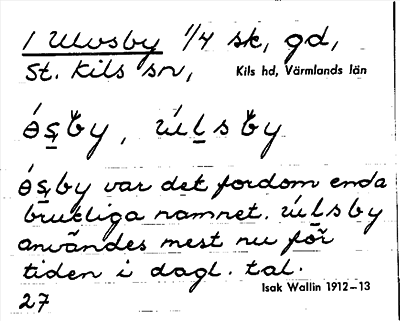 1 Ulvsby 1/4 sk, gd,
St. Kils sn,
Kils hd, Värmlands län
ǿs̱by, úḻsby
ǿs̱by var det fordom enda
brukliga namnet. úḻsby
användes mest nu för
tiden i dagl. tal.
Isak Wallin 1912–13
27